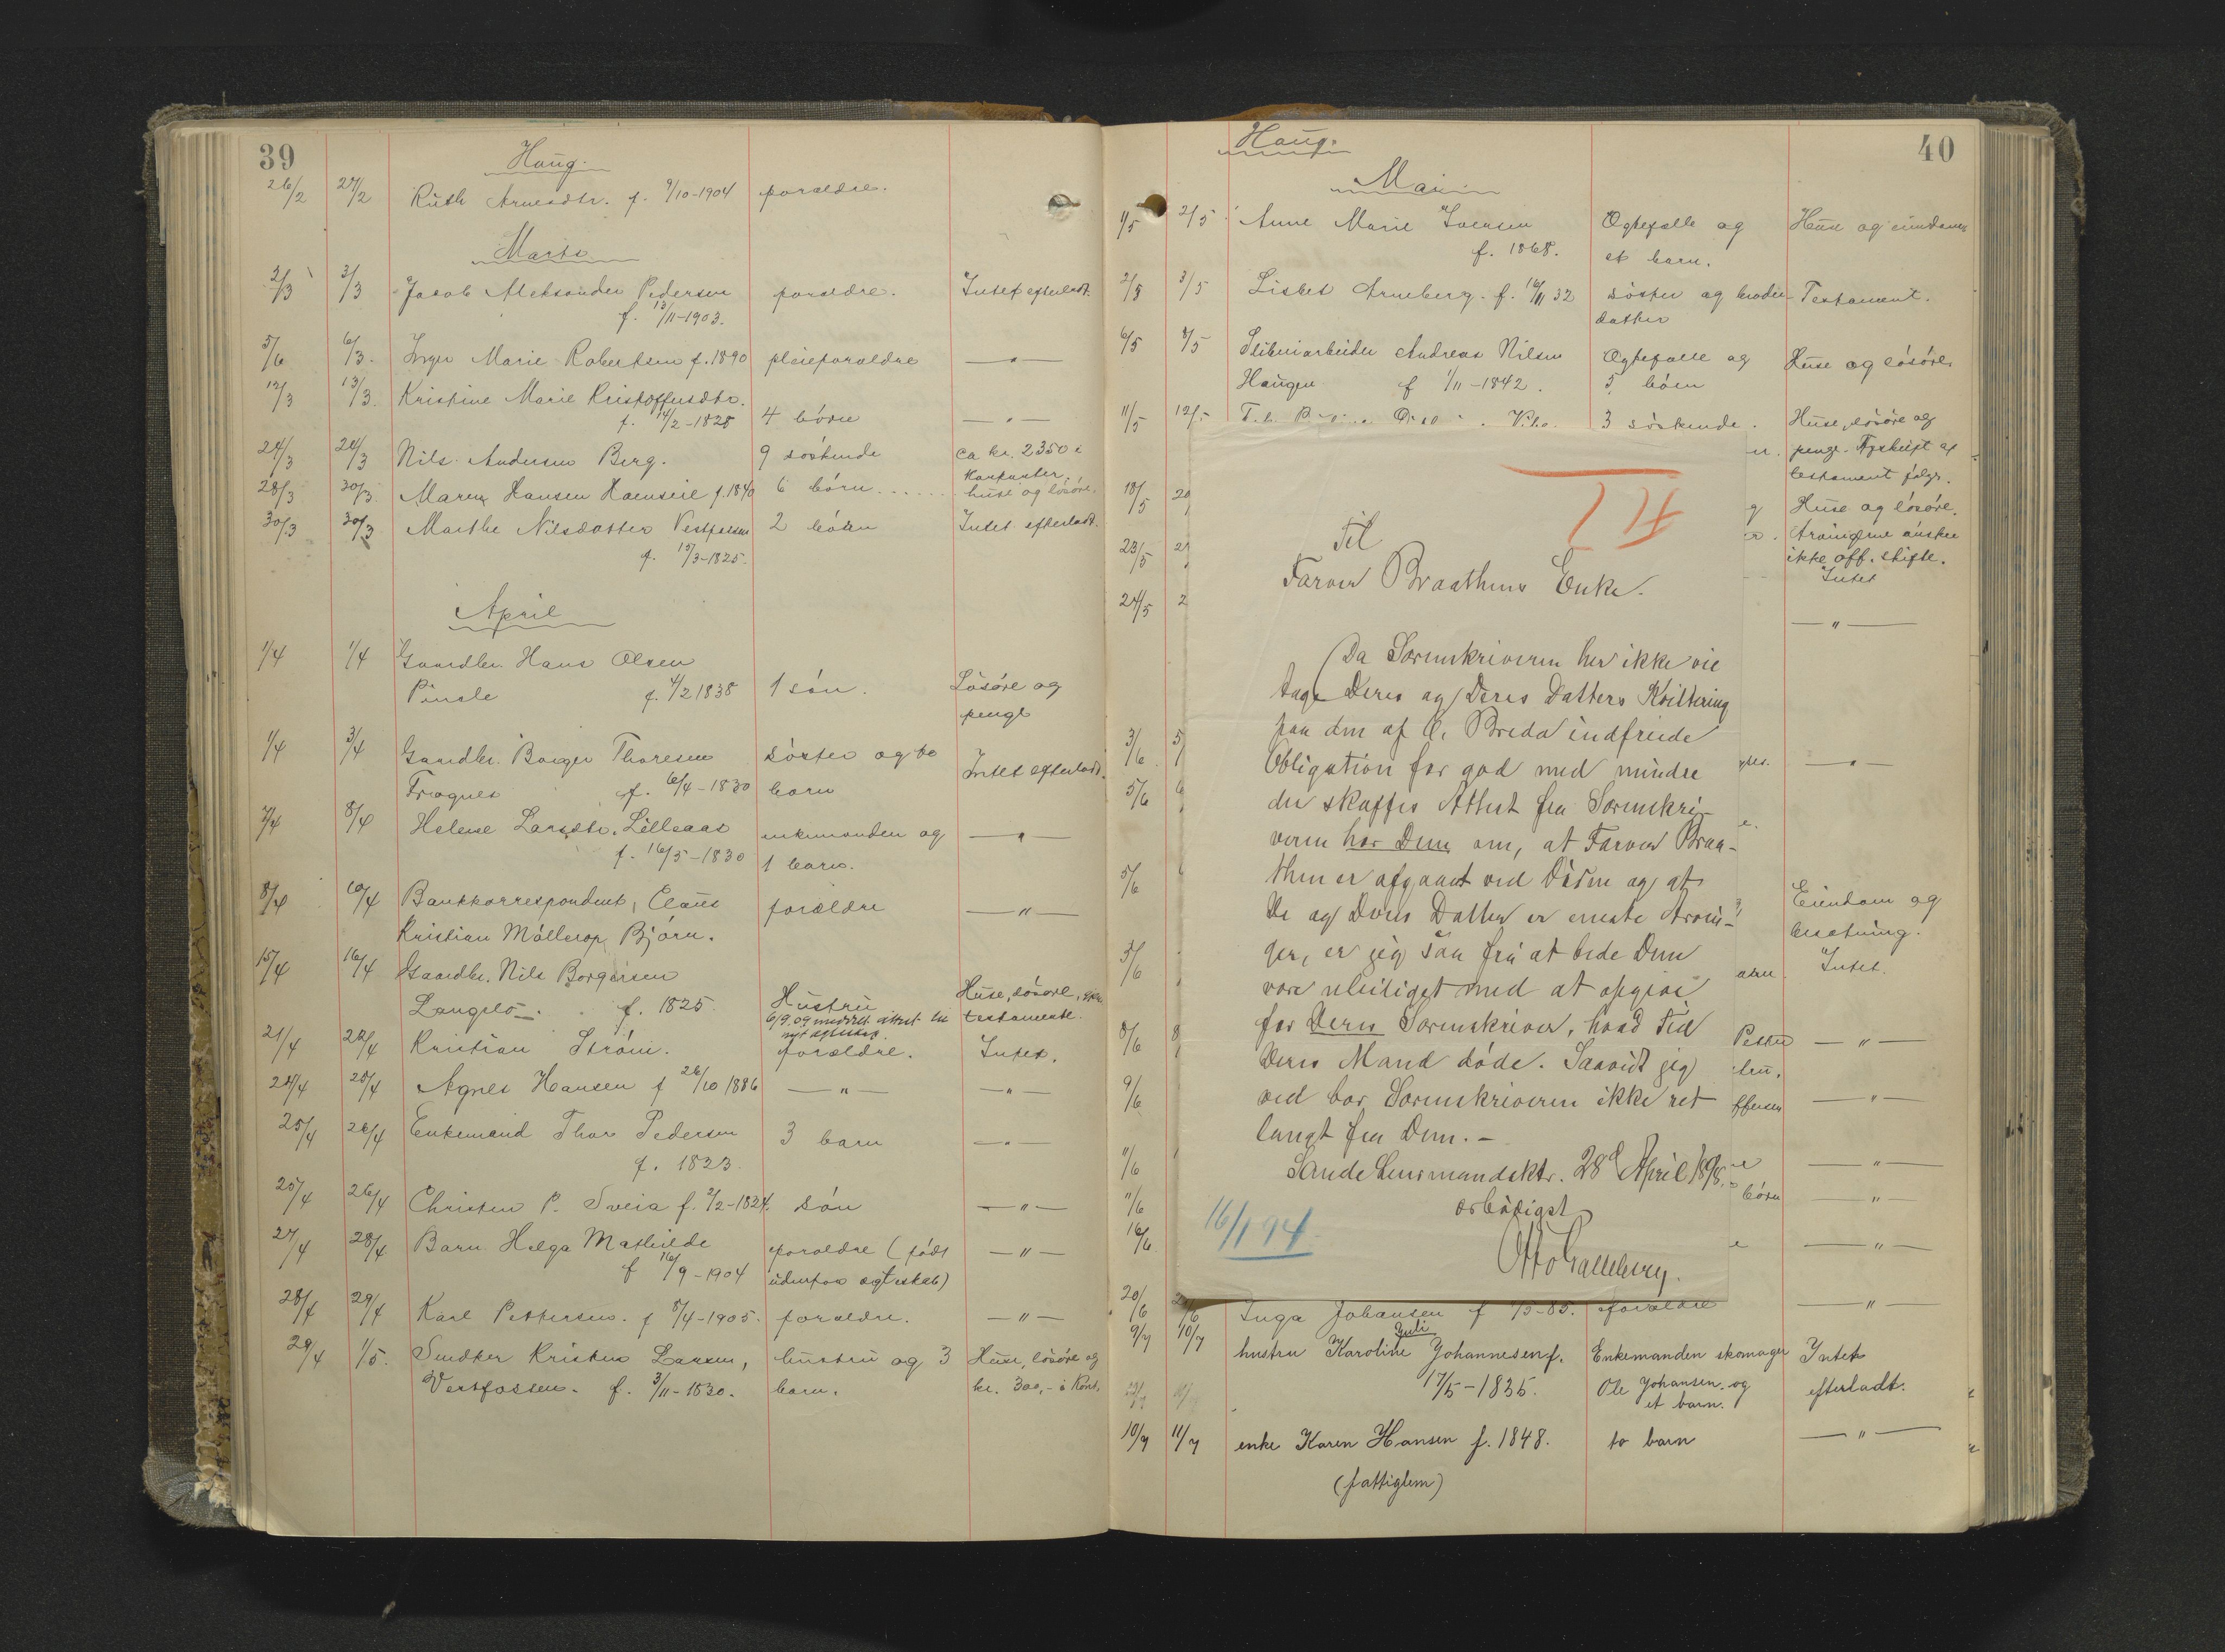 39
Haug.
26/2 27/2 Ruth Arnesdtr. f. 9/10-1904 forældre.
Marts
2/3 3/3 Jacob Aleksander Pedersen forældre. Intet efterladt.
f. 13/11-1903.
5/6 6/3. Inger Marie Robertsen f. 1890 pleieforældre — " —
12/3 13/3. Kristine Marie Kristoffersdtr.
f. 14/2-1828 4 börn — " —
24/3 24/3 Nils Andersen Berg. 9 söskende ca kr. 2350 i
Kontanter,
28/3 30/3 Maren Hansen f. 1840 6 börn...... huse og lösöre.
30/3 30/3 Marthe Nilsdatter Vestfossen 2 börn Intet efterladt.
f. 15/3-1825.
April
1/4 1/4 Gaardbr. Hans Olsen
f. 4/2 1838 1 sön. Lösöre og
penge
1/4 3/4 Gaardbr. Borger Thoresen söster og to Intet efterladt.
Fragnes f. 6/4-1830 barn
7/4 8/4 Helene Larsdtr. Lilleaas enkemanden og — " —
f. 16/5-1830 1 barn.
8/4 10/4 Bankkorrespondent, Claus forældre — " —
Kristian Möllerop Björn.
15/4 16/4 Gaardbr. Nils Borgersen
Langelö. f. 1825 Hustru Huse, lösöre,
6/9.09 meddelt attest testamente.
21/4 22/4 Kristian Ström. forældre. Intet.
24/4 25/4 Agnes Hansen f 26/10 1886 — " — — " —
25/4 26/4 Enkemand Thor Pedersen 3 barn — " —
f. 1823.
25/4 26/4 Christen P. Sveia f. 2/2-1824. sön — " —
27/4 28/4 Barn Helga Mathilde forældre (födt — " —
f 16/9-1904 udenfor ægteskab)
28/4 29/4 Karl Pettersen. f 8/4-1905. forældre. — " —
29/4 1/5. Snedker Kristen Larsen, hustru og 3 Huse, lösöre og
Vestfossen. f. 3/11-1830. barn. kr. 300,- i Kont.
40
Haug.
Mai
1/5 2/5 Anne Marie Iversen Ægtefælle og Huse og eiendom
f. 1868. et barn.
2/5 3/5 Lisbet Arneberg. f. 16/11 32 söster og broder- Testament.
datter
6/5 8/5 Sliberiarbeider Andreas Nilsen Ægtefælle og Huse og lösöre
Haugen f 1/11-1842. 5 börn
11/5 12/5 3 söskende. Huse, lösöre og
penge. Afskrift af
testament følger.
18/5 20 Huse og lösöre.
23/5 2 Arvingerne önsker
ikke off. skifte.
Intet
24/5 2 — " —
3/6 5/ — " —
5/6 6
5/6 Eiendom og
besætning.
3/6 Intet.
8/6 8 — " —
9/6 ffersen — " —
11/6 — " —
11/6 börn — " —
16/6. — " —
FI
Til
Farver Braathens Enke.
Da Sorenskriveren her ikke vil
tage Deres og Deres Datters Kvittering
paa den af O. Breda indfriede
Obligation for god med mindre
der skaffes Attest fra Sorenskri-
veren hos Dem om, at Farver Braa-
then er afgaaet ved Döden og at
De og Deres Datter er eneste Arvin-
ger, er jeg saa fri at bede Dem
være uleiliget med at opgive
for Deres Sorenskriver, hvad Tid
Deres Mand döde. Saavidt jeg
ved bor Sorenskriveren ikke ret
langt fra Dem.-
Sande Lensmandsktr. 28d April 1898.
ærbödigst
Otto Galleberg.
16/1 94
20/6 Inga Johansen f /5-85. forældre — " —
Juli
9/7 10/7 hustru Karoline Johannesen f. Enkemanden skomager Intet
17/5-1835. Ole Johansen og efterladt.
et barn.
10/7 11/7 enke Karen Hansen f. 1848. to barn — " —
(fattiglem)